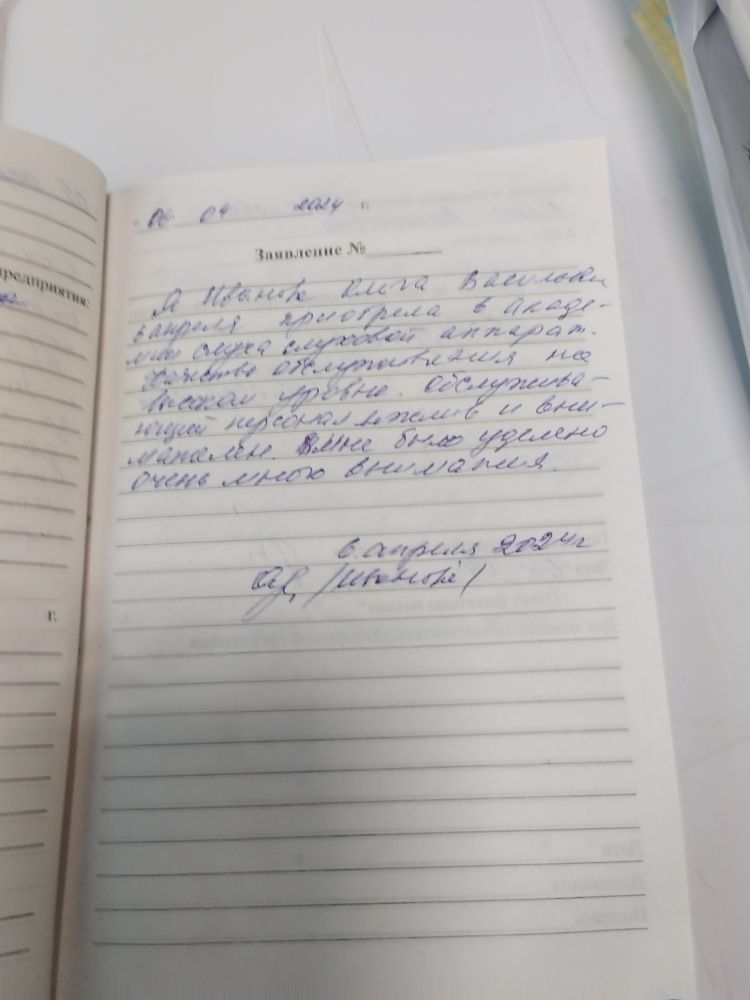 "06" 04 2024 г.
Заявление №
Я Иванова Ольга Васильевна
6 апреля приобрела в Акаде-
мии слуха слуховой аппарат.
Качество обслуживания на
высоком уровне. Обслужива-
ющий персонал вежлив и вни-
мателен. Мне было уделено
очень много внимания.
6 апреля 2024 г
/Иванова/
предприятия:
г.